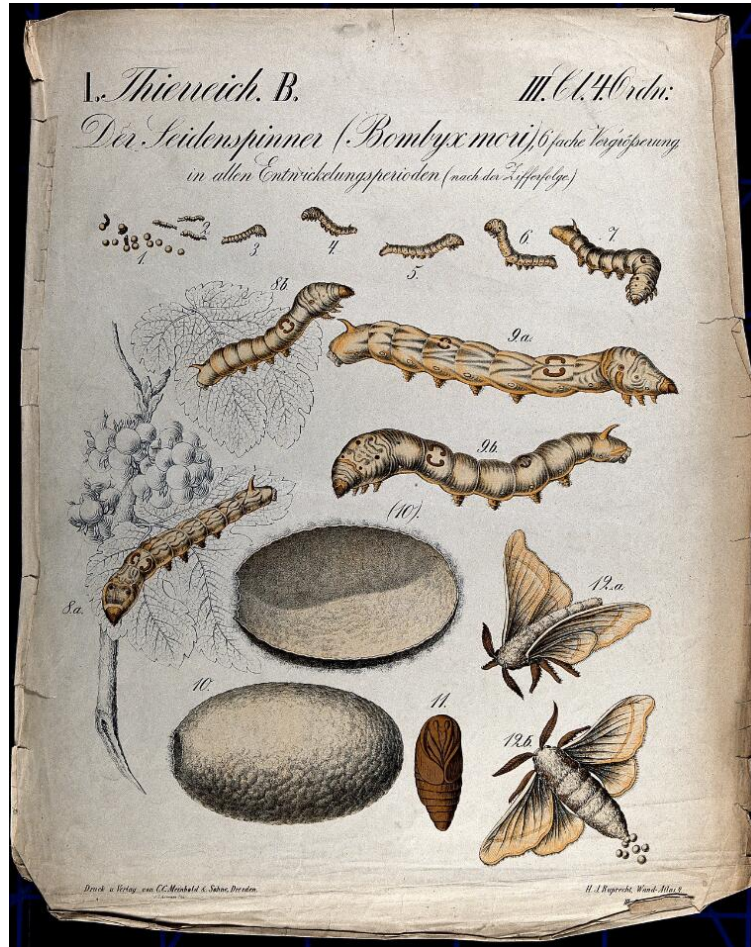 I. Thierreich. B. III. Cl. 4. Ordn:
Der Seidenspinner (Bombyx mori), 6 fache Vergrößerung
in allen Entwickelungsperioden (nach der Zifferfolge)
1. 2. 3. 4. 5. 6. 7.
8.b.
9.a.
9.b.
(10).
8.a.
12.a.
10.
11.
12.b.
Druck u Verlag von C.C. Meinhold & Söhne, Dresden.
H. J. Ruprecht, Wand-Atlas